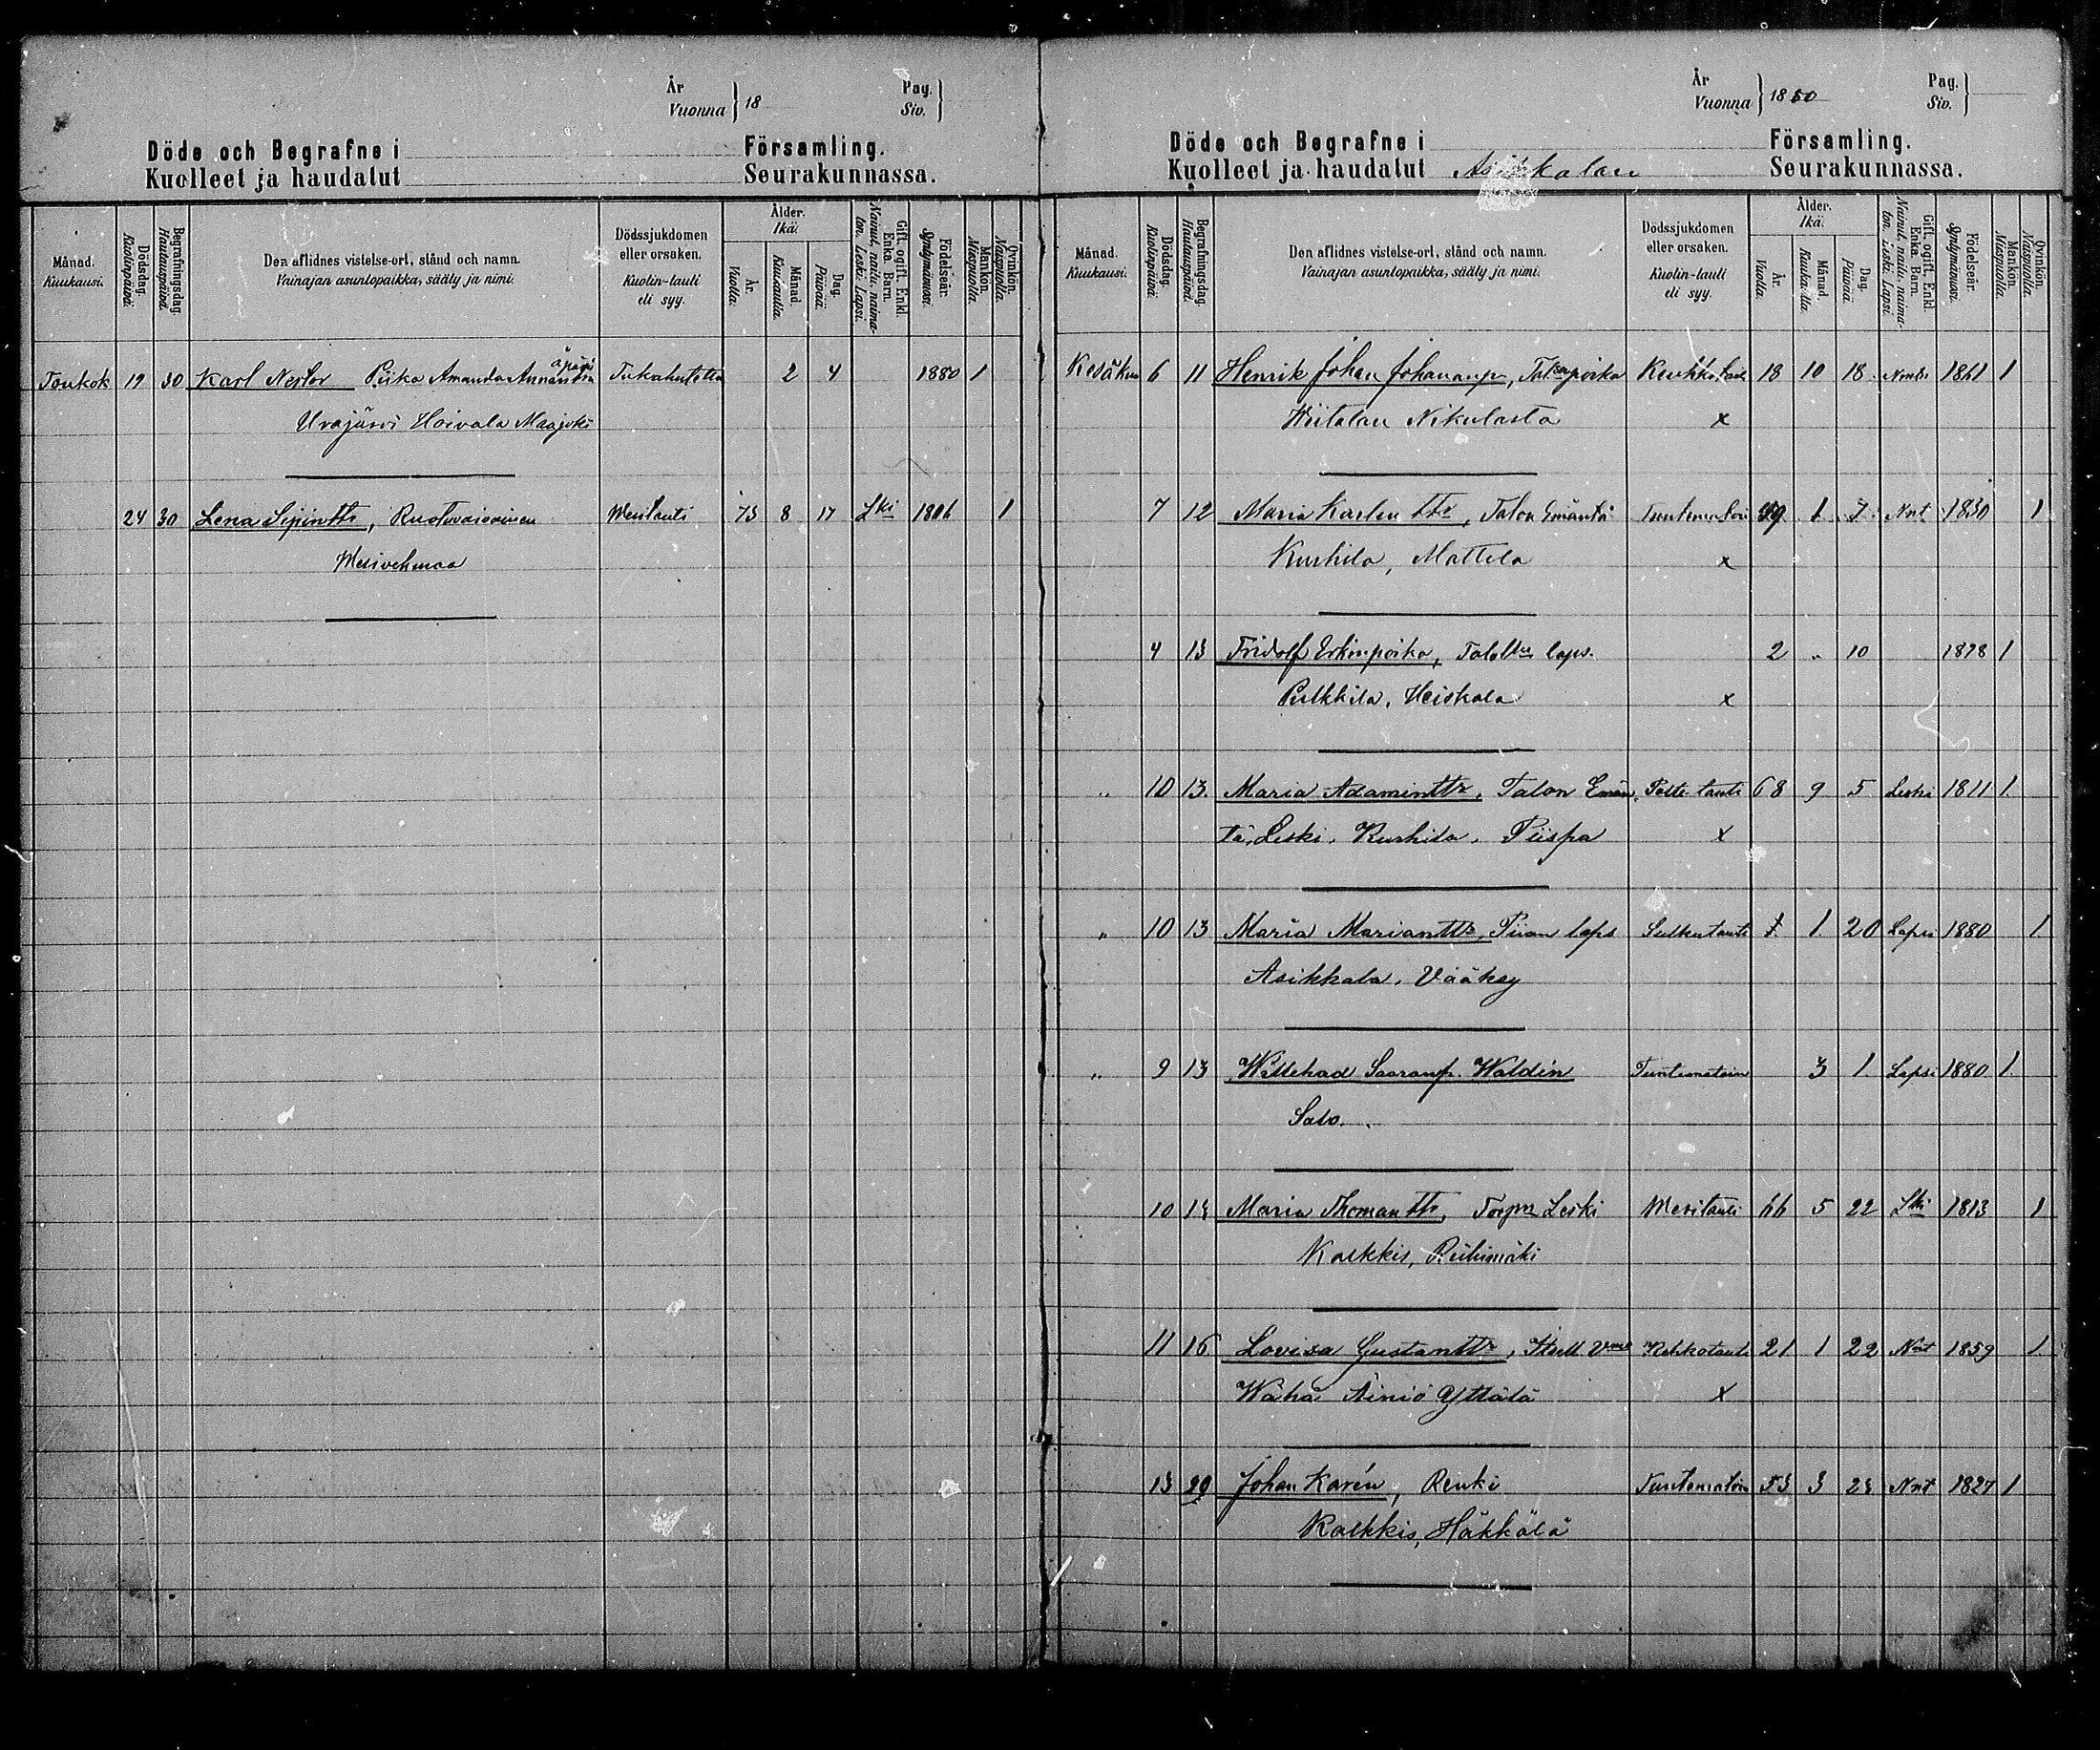 År
Vuonna } 18
Pag.
Siv. }
Döde och Begrafne i Församling.
Kuolleet ja haudatut Seurakunnassa.
Månad.
Kuukausi.
Dödsdag.
Kuolinpäivä.
Begrafningsdag.
Hautauspäivä.
Den aflidnes vistelse-ort, stånd och namn.
Vainajan asuntopaikka, sääty ja nimi.
Dödssjukdomen
eller orsaken.
Kuolin-tauti
eli syy.
Ålder.
Ikä.
År.
Vuotta.
Månad.
Kuukautta.
Dag.
Päivää.
Gift, ogift. Enkl.
Enka. Barn.
Nainut, naitu, naima-
ton. Leski. Lapsi.
Födelseår.
Syntymävuosi.
Mankön.
Miespuolia.
Qvinkön.
Naispuolia.
Toukok 19 30 Karl Nestor Piika Amanda äpärä Tukahutettu 2 4 1880 1
Urajärvi Hoivala Maajoki
24 30 Lena Sipintr, Ruotuvaivainen Wesitauti 73 8 17 Lki 1806 1
Wesivehmaa
År
Vuonna } 1880
Pag.
Siv. }
Döde och Begrafne i Församling.
Kuolleet ja haudatut Asikkalan Seurakunnassa.
Månad.
Kuukausi.
Dödsdag.
Kuolinpäivä.
Begrafningsdag.
Hautauspäivä.
Den aflidnes vistelse-ort, stånd och namn.
Vainajan asuntopaikka, sääty ja nimi.
Dödssjukdomen
eller orsaken.
Kuolin-tauti
eli syy.
Ålder.
Ikä.
År.
Vuotta.
Månad.
Kuukautta.
Dag.
Päivää.
Gift, ogift. Enkl.
Enka. Barn.
Nainut, naitu, naima-
ton. Leski. Lapsi.
Födelseår.
Syntymävuosi.
Mankön.
Miespuolia.
Qvinkön.
Naispuolia.
Kesäkuu 6 11 Henrik Johan Johananp, Talsanpoika 18 10 18 1861 1
Wiitalan Nikulasta x
7 12 Maria Karlen ttr, Talon Emäntä 1 7 Nnt 1830 1
Kurhila, Mattila x
4 13 Fridolf Erkinpoika, laps. 2 " 10 1878 1
Pulkkila, Heiskala x
" 10 13. Maria Adaminttr, Talon Emän- Polte tauti 68 9 5 Leski 1811 1.
tä, Leski, Kurhila, Piispa x
" 10 13 Maria Marianttr, Piian laps Sulkutauti 1. 20 Lapsi 1880 1
Asikkala, Vääksy
" 9 13 Willehad Saaranp. Waldin Tuntematoin 3 1. Lapsi 1880 1.
Salo.
10 13 Maria Thoman ttr, Torpn Leski Wesitauti 66 5 22 Lki 1813 1
Kalkkis, Riihimäki
11 16 Lovisa Gustanttr, Itsell Vmo Keuhkotauti 21 1 22 Nnt 1859 1.
Wähä Äiniö Yttälä x
13 20 Johan Karén, Renki Tuntematoin 53 3 23 Nnt 1827 1
Kalkkis, Häkkälä